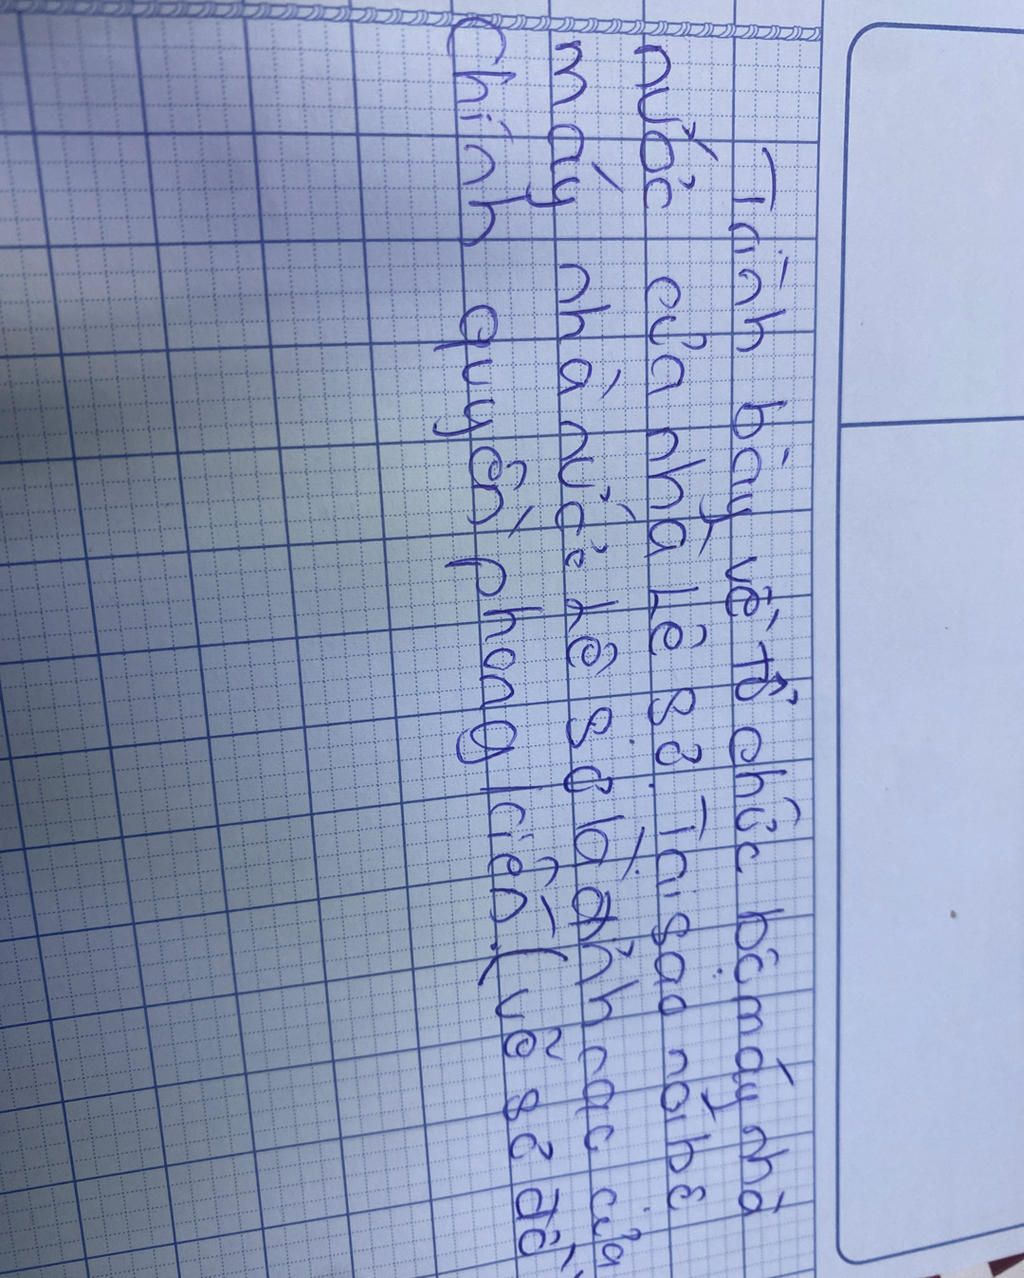 Trình bày về tổ chức bộ máy nhà
nước của nhà Lê Sơ Tại sao nói bộ
máy nhà nước Lê Sơ là đỉnh cao của
Chính quyền phong kiến (vẽ sơ đồ